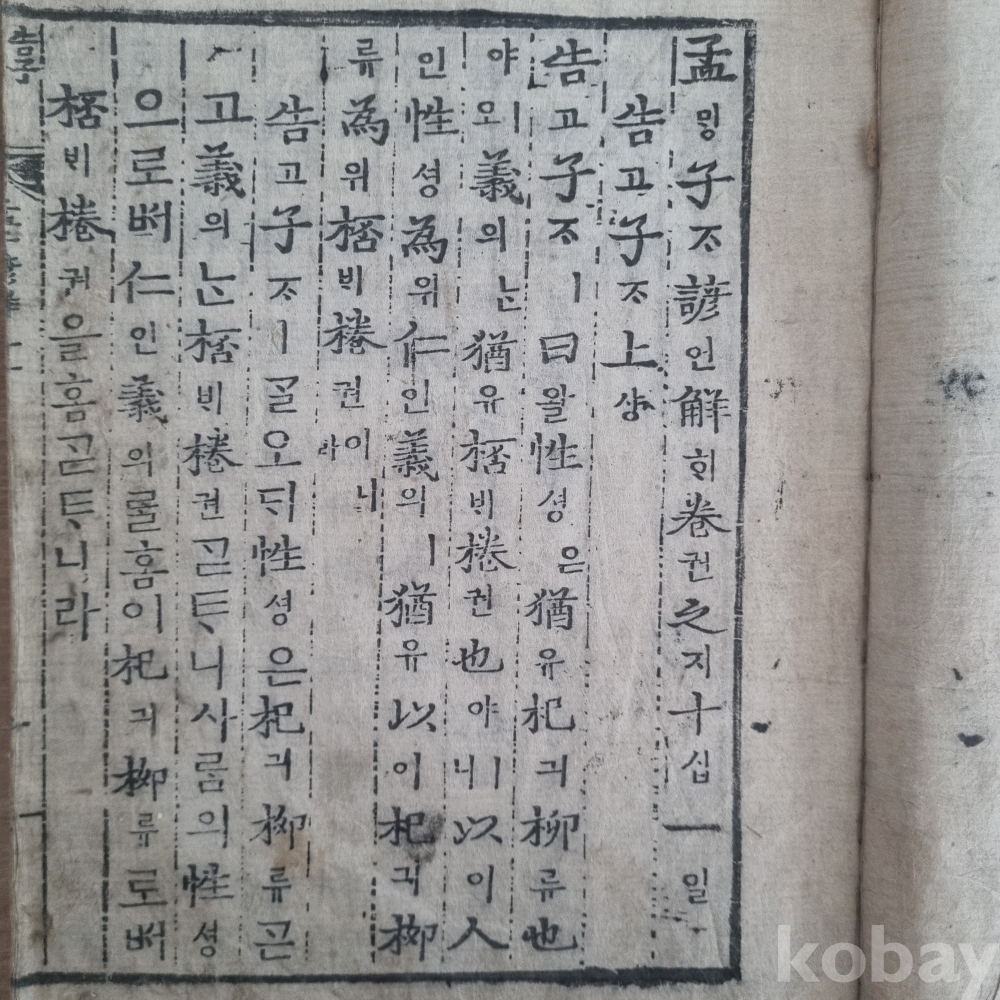 孟ᄆᆡᆼ子ᄌᆞ諺언解ᄒᆡ卷권之지十십一일
告고子ᄌᆞ上샹
告고子ᄌᆞㅣ曰왈性셩은猶유杞긔柳류也
야ㅣ오義의ᄂᆞᆫ猶유桮ᄇᆡ棬권也야ㅣ니以이人
인性셩為위仁인義의ㅣ猶유以이杞긔柳
류為위桮ᄇᆡ棬권이니라
告고子ᄌᆞㅣᄀᆞᆯ오ᄃᆡ性셩은杞긔柳류ᄀᆞᆮ
고義의ᄂᆞᆫ桮ᄇᆡ棬권ᄀᆞᆮᄐᆞ니사ᄅᆞᆷ의性셩
으로ᄡᅥ仁인義의ᄅᆞᆯ홈이杞긔柳류로ᄡᅥ
桮ᄇᆡ棬권을홈ᄀᆞᆮᄐᆞ니라
告子
kobay